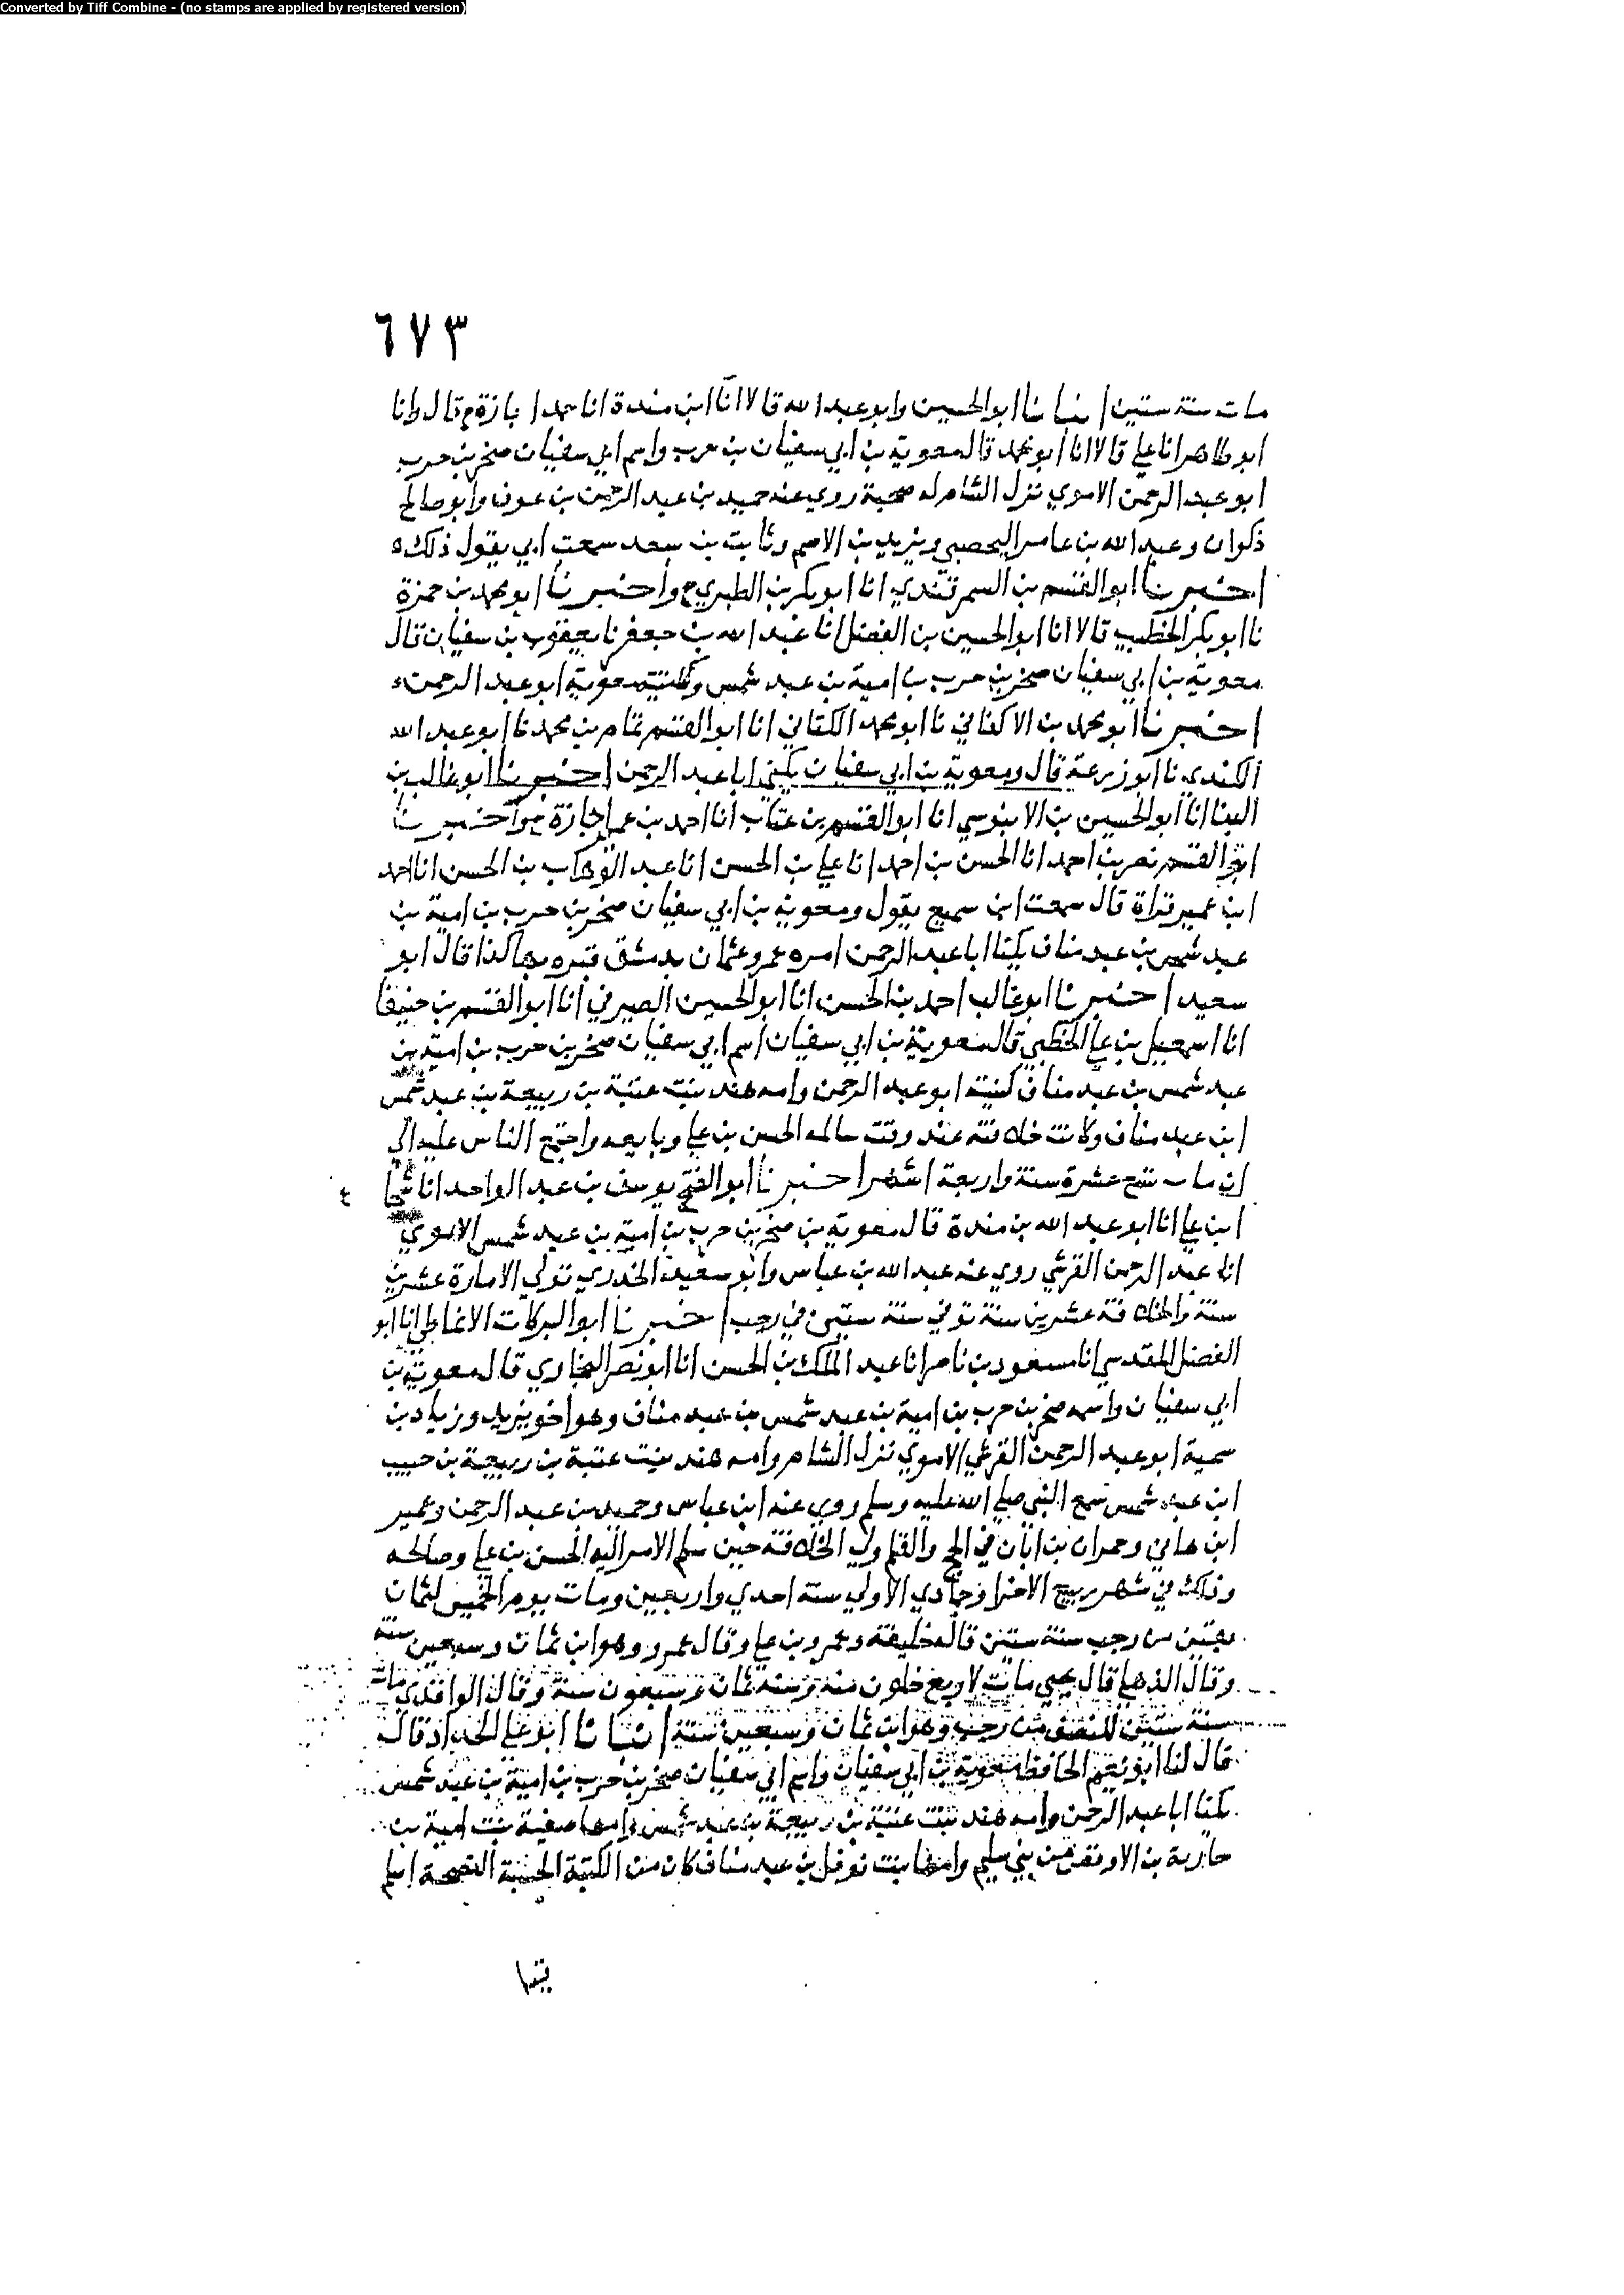 Converted by Tiff Combine - (no stamps are applied by registered version)
٦٧٣
مات سنة ستين انبانا ابو الحسين وابو عبد الله قالا انا ابن مندة انا حمد اجازة ح قال وانا
ابو طاهر انا علي قالا انا ابو محمد قال معوية بن ابي سفيان بن حرب واسم ابي سفيان صخر بن حرب
ابو عبد الرحمن الاموي نزل الشام له صحبة روي عنه حميد بن عبد الرحمن بن عوف وابو صالح
ذكوان وعبد الله بن عامر اليحصبي ويزيد بن الاصم وثابت بن سعد سمعت ابي يقول ذلك
اخبرنا ابو القسم بن السمرقندي انا ابو بكر بن الطبري ح واخبرنا ابو محمد بن حمزة
نا ابو بكر الخطيب قالا انا ابو الحسين بن الفضل انا عبد الله بن جعفر نا يعقوب بن سفيان قال
معوية بن ابي سفيان صخر بن حرب بن امية بن عبد شمس وكنية معوية ابو عبد الرحمن
اخبرنا ابو محمد بن الاكفاني نا ابو محمد الكتاني انا ابو القسم تمام بن محمد نا ابو عبد الله
الكندي نا ابو زرعة قال ومعوية بن ابي سفيان يكني ابا عبد الرحمن اخبرنا ابو غالب بن
البنا انا ابو الحسين بن الابنوسي انا ابو القسم بن عتاب انا احمد بن عمير اجازة ح واخبرنا
ابو القسم نصر بن احمد انا الحسن بن احمد انا علي بن الحسن انا عبد الوهاب بن الحسن انا احمد
ابن عمير قراة قال سمعت ابن سميع يقول ومعوية بن ابي سفيان صخر بن حرب بن امية بن
عبد شمس بن عبد مناف يكنا ابا عبد الرحمن امره عمر وعثمان بدمشق قبره بها كذا قال ابو
سعيد اخبرنا ابو غالب احمد بن الحسن انا ابو الحسين الصيرفي انا ابو القسم بن حنيفا
انا اسمعيل بن علي الخطبي قال معوية بن ابي سفيان اسم ابي سفيان صخر بن حرب بن امية بن
عبد شمس بن عبد مناف كنيته ابو عبد الرحمن وامه هند بنت عتبة بن ربيعة بن عبد شمس
ابن عبد مناف وكانت خلافته عند وقت سالمه الحسن بن علي وبايعه واجتمع الناس عليه الي
ان مات تسع عشرة سنة واربعة اشهر اخبرنا ابو الفتح يوسف بن عبد الواحد انا شجا
ع
ابن علي انا ابو عبد الله بن مندة قال معوية بن صخر بن حرب بن امية بن عبد شمس الاموي
ابا عبد الرحمن القرشي روي عنه عبد الله بن عباس وابو سعيد الخدري تولي الامارة عشرين
سنة والخلافة عشرين سنة توفي سنة ستين في رجب اخبرنا ابو البركات الانماطي انا ابو
الفضل المقدسي انا مسعود بن ناصر انا عبد الملك بن الحسن انا ابو نصر البخاري قال معوية بن
ابي سفيان واسمه صخر بن حرب بن امية بن عبد شمس بن عبد مناف وهو اخو يزيد وزياد بن
سمية ابو عبد الرحمن القرشي الاموي نزل الشام وامه هند بنت عتبة بن ربيعة بن حبيب
ابن عبد شمس سمع النبي صلي الله عليه وسلم روي عنه ابن عباس وحميد بن عبد الرحمن وعمير
ابن هاني وحمران بن ابان في الحج والقلم ولي الخلافة حين سلم الامر اليه الحسن بن علي وصالحه
وذلك في شهر ربيع الاخر او جمادي الاولي سنة احدي واربعين ومات يوم الخميس لثمان
بقين من رجب سنة ستين قاله خليفة وعمرو بن علي وقال عمرو وهو ابن ثمان وسبعين سنة
وقال الذهلي قال يحيي مات لاربع خلون منه وسنه ثمان وسبعون سنة وقال الواقدي مات
سنة ستين للنصف من رجب وهو ابن ثمان وسبعين سنة انبانا ابو علي الحداد قال
قال لنا ابو نعيم الحافظ معوية بن ابي سفيان واسم ابي سفيان صخر بن حرب بن امية بن عبد شمس
يكنا ابا عبد الرحمن وامه هند بنت عتبة بن ربيعة بن عبد شمس وامها صفية بنت امية بن
حارثة بن الاوقص من بني سليم وامها بنت نوفل بن عبد مناف كان من الكتبة الحسبة الفصحة اسلم